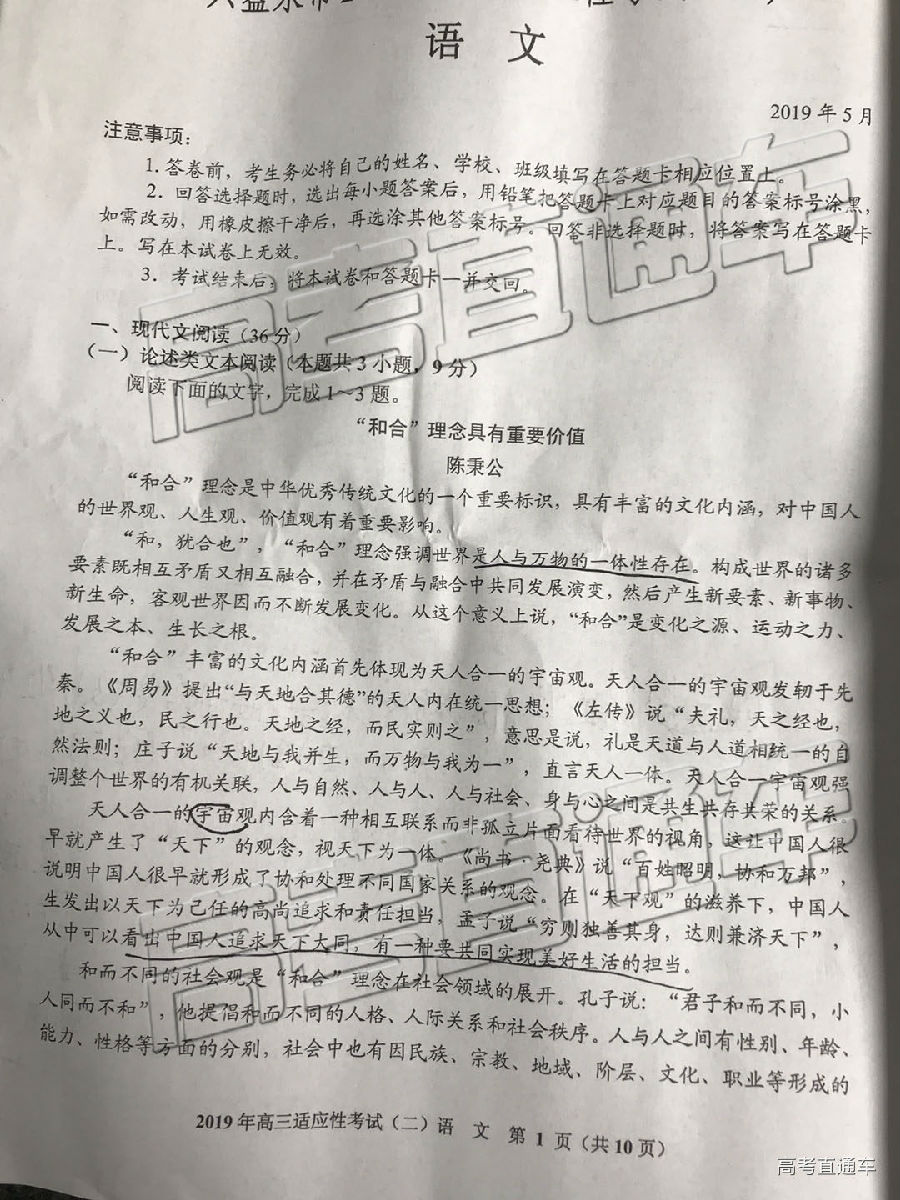 语 文
2019 年 5 月
注意事项：
1. 答卷前，考生务必将自己的姓名、学校、班级填写在答题卡相应位置上。
2. 回答选择题时，选出每小题答案后，用铅笔把答题卡上对应题目的答案标号涂黑，
如需改动，用橡皮擦干净后，再选涂其他答案标号。回答非选择题时，将答案写在答题卡
上。写在本试卷上无效。
3. 考试结束后，将本试卷和答题卡一并交回。
一、现代文阅读（36 分）
（一）论述类文本阅读（本题共 3 小题，9 分）
阅读下面的文字，完成 1～3 题。
“和合”理念具有重要价值
陈秉公
“和合”理念是中华优秀传统文化的一个重要标识，具有丰富的文化内涵，对中国人
的世界观、人生观、价值观有着重要影响。
“和，犹合也”，“和合”理念强调世界是人与万物的一体性存在。构成世界的诸多
要素既相互矛盾又相互融合，并在矛盾与融合中共同发展演变，然后产生新要素、新事物、
新生命，客观世界因而不断发展变化。从这个意义上说，“和合”是变化之源、运动之力、
发展之本、生长之根。
“和合”丰富的文化内涵首先体现为天人合一的宇宙观。天人合一的宇宙观发轫于先
秦。《周易》提出“与天地合其德”的天人内在统一思想；《左传》说“夫礼，天之经也，
地之义也，民之行也。天地之经，而民实则之”，意思是说，礼是天道与人道相统一的自
然法则；庄子说“天地与我并生，而万物与我为一”，直言天人一体。天人合一宇宙观强
调整个世界的有机关联，人与自然、人与人、人与社会、身与心之间是共生共存共荣的关系。
天人合一的宇宙观内含着一种相互联系而非孤立片面看待世界的视角，这让中国人很
早就产生了“天下”的观念，视天下为一体。《尚书·尧典》说“百姓昭明，协和万邦”，
说明中国人很早就形成了协和处理不同国家关系的观念。在“天下观”的滋养下，中国人
生发出以天下为己任的高尚追求和责任担当，孟子说“穷则独善其身，达则兼济天下”，
从中可以看出中国人追求天下大同，有一种要共同实现美好生活的担当。
和而不同的社会观是“和合”理念在社会领域的展开。孔子说：“君子和而不同，小
人同而不和”，他提倡和而不同的人格、人际关系和社会秩序。人与人之间有性别、年龄、
能力、性格等方面的分别，社会中也有因民族、宗教、地域、阶层、文化、职业等形成的
2019 年高三适应性考试（二）语 文 第 1 页（共 10 页）
高考直通车
高考直通车
高考直通车